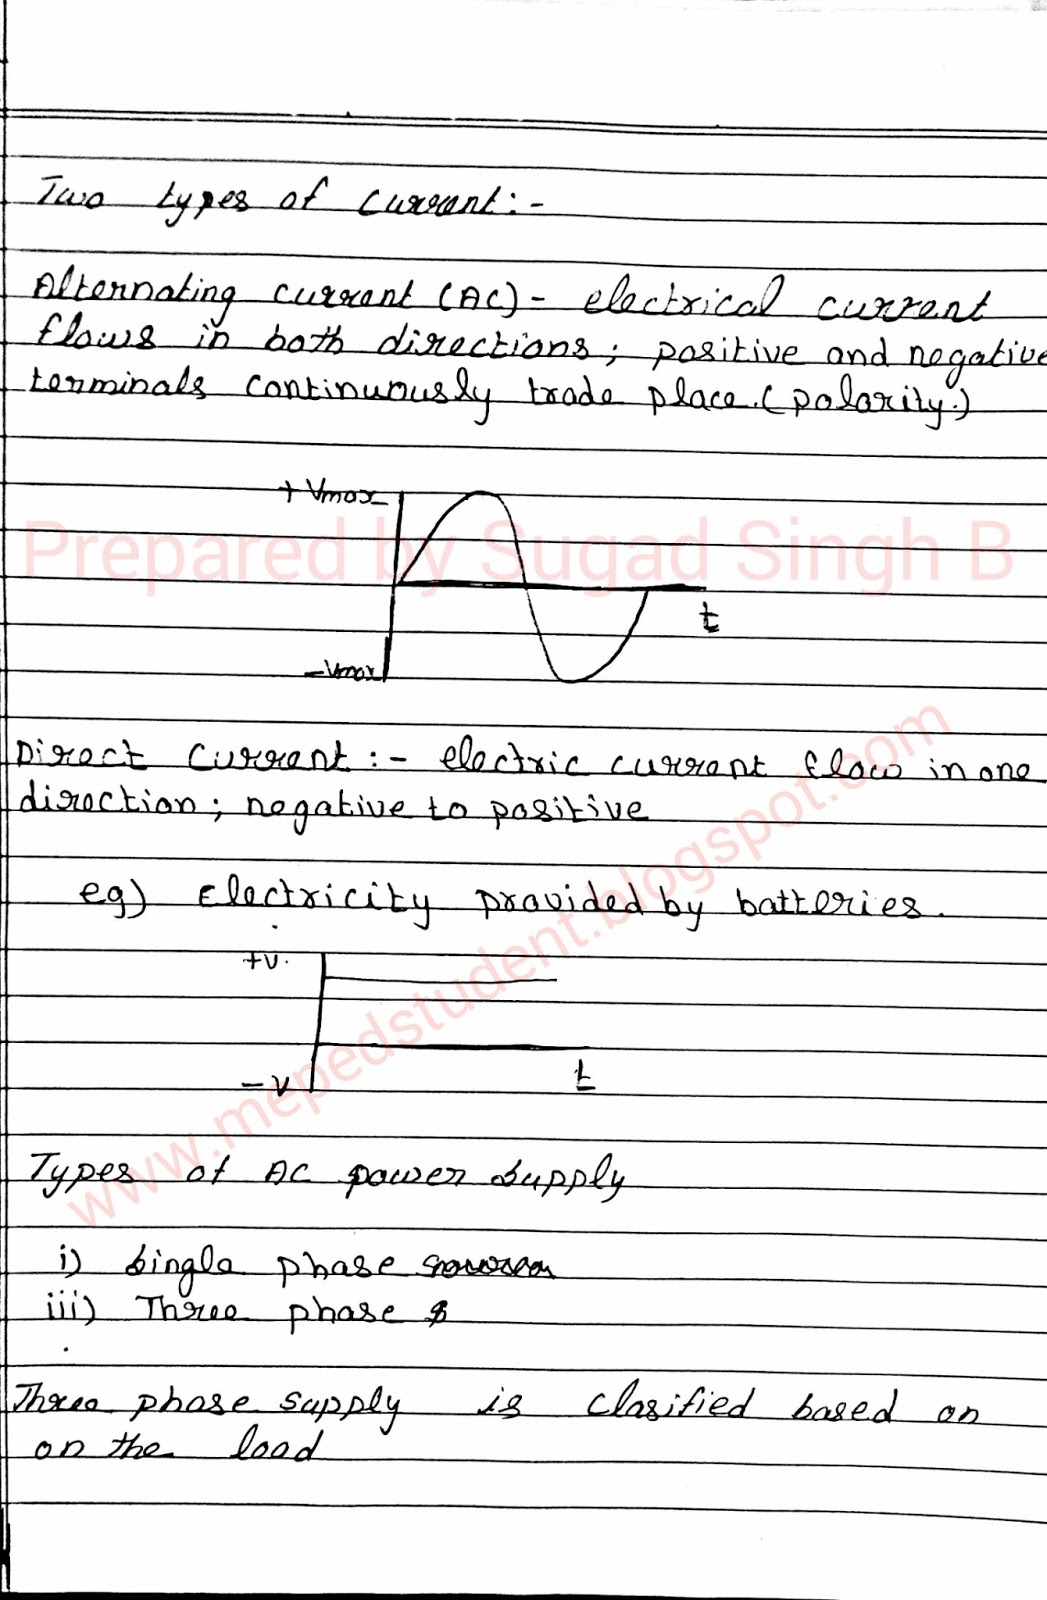 Two types of current:-
Alternating current (AC) - electrical current
flows in both directions; positive and negative
terminals continuously trade place. (polarity.)
+Vmax
Prepared by Sugad Singh B
t
-Vmax
Direct Current:- electric current flow in one
direction; negative to positive
eg) Electricity provided by batteries.
+v.
t
-v
www.mepedstudent.blogspot.com
Types of AC power supply
i) Single phase
iii) Three phase
Three phase supply is clasified based on
on the load